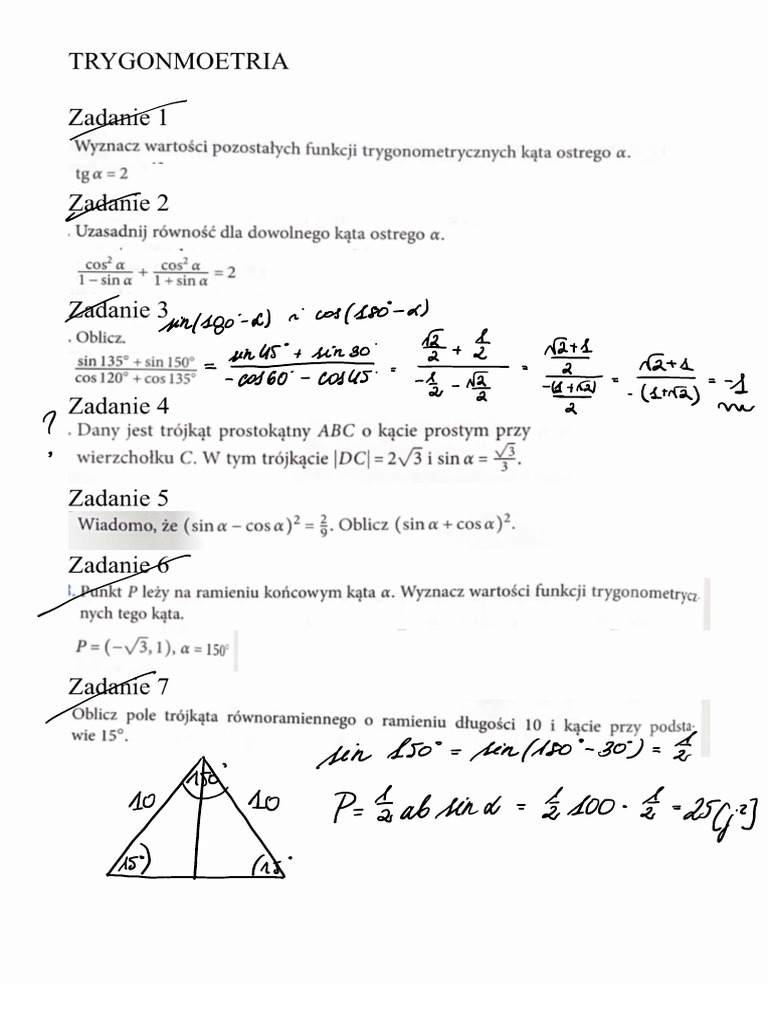 TRYGONMOETRIA
Zadanie 1
Wyznacz wartości pozostałych funkcji trygonometrycznych kąta ostrego α.
tg α = 2
Zadanie 2
. Uzasadnij równość dla dowolnego kąta ostrego α.
cos² α / (1 − sin α) + cos² α / (1 + sin α) = 2
Zadanie 3 sin(180°-α) ~ cos(180°-α)
. Oblicz.
(sin 135° + sin 150°) / (cos 120° + cos 135°) = (sin 45° + sin 30°) / (-cos 60° - cos 45°) = (√2/2 + 1/2) / (-1/2 - √2/2) = ((√2+1)/2) / (-(1+√2)/2) = (√2+1) / -(1+√2) = -1
Zadanie 4
? . Dany jest trójkąt prostokątny ABC o kącie prostym przy
wierzchołku C. W tym trójkącie |DC| = 2√3 i sin α = √3/3.
Zadanie 5
Wiadomo, że (sin α − cos α)² = 2/9. Oblicz (sin α + cos α)².
Zadanie 6
. Punkt P leży na ramieniu końcowym kąta α. Wyznacz wartości funkcji trygonometrycz-
nych tego kąta.
P = (−√3, 1), α = 150°
Zadanie 7
Oblicz pole trójkąta równoramiennego o ramieniu długości 10 i kącie przy podsta-
wie 15°.
sin 150° = sin(180°-30°) = 1/2
150°
10 10
P = 1/2 ab sin α = 1/2 100 · 1/2 = 25 [j²]
15° 15°